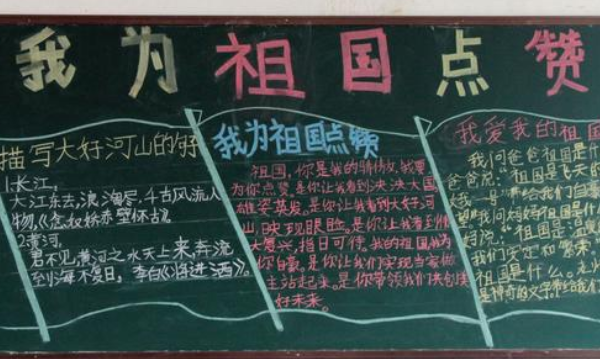 我为祖国点赞
描写大好河山的句
1长江,
大江东去,浪淘尽,千古风流人
物,《念奴娇赤壁怀古》
2黄河,
君不见黄河之水天上来,奔流
到海不复日,李白《将进酒》。
我为祖国点赞
祖国,你是我的骄傲,我要
为你点赞是你让我看到泱泱大国,
雄姿英发。是你让我看到大好河
山,映现眼睑。是你让我看到伟
大复兴,指日可待。我的祖国我为
你自豪。是你让我们实现当家做
主站起来。是你带领我们共创美
好未来。
我爱我的祖国
我问爸爸祖国是什
爸爸说:“祖国是飞天的
我问妈妈祖国是
妈说:“祖国是温暖
我们安定和繁荣
祖国是什么。
是神奇的文字